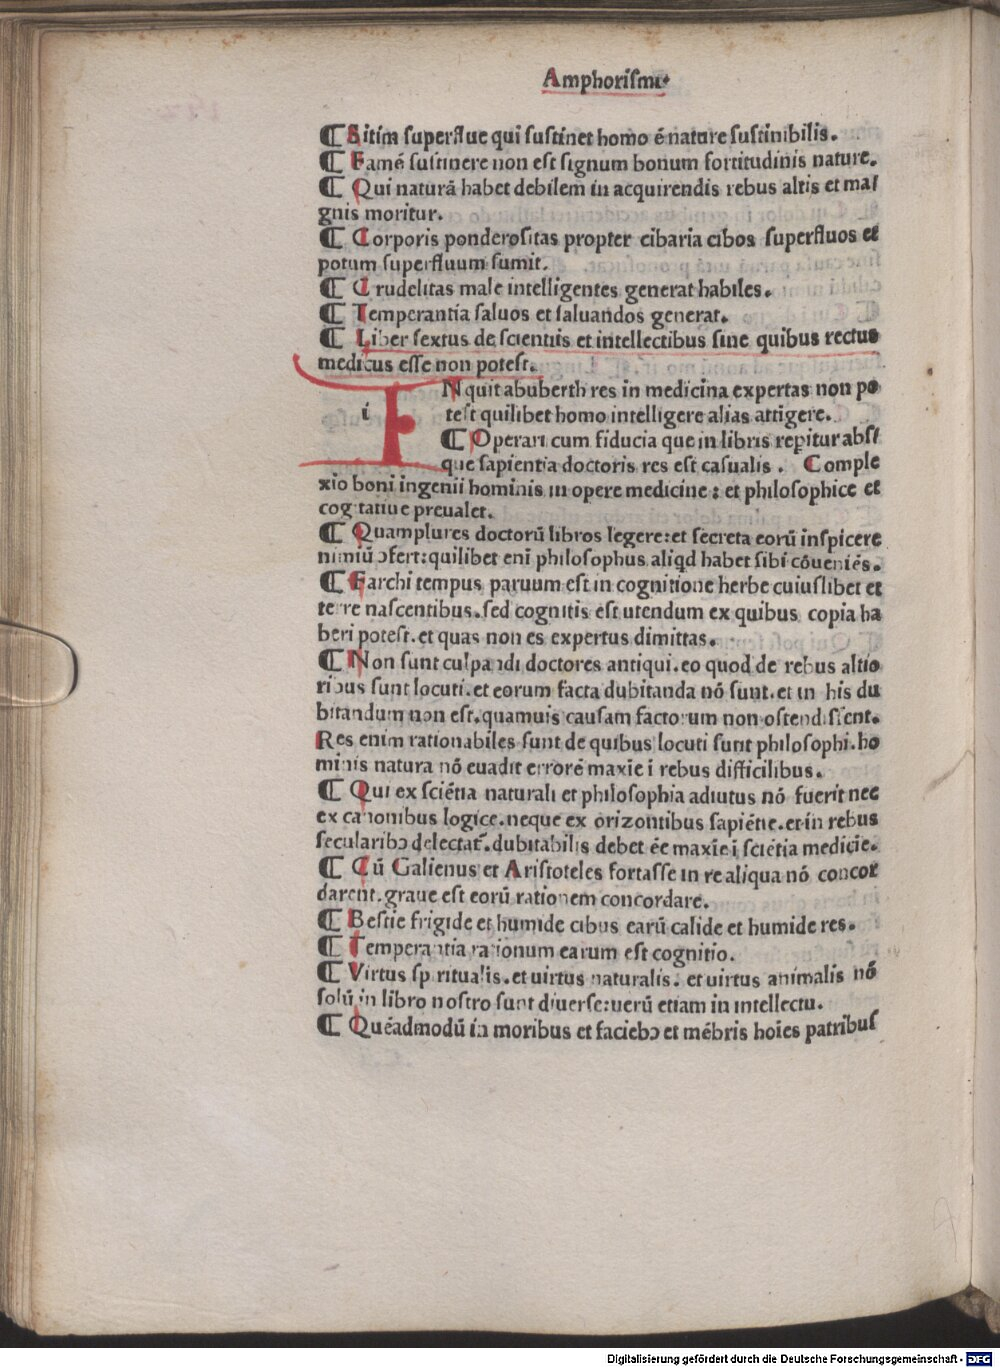 Amphorismi.
¶ Sitim superflue qui sustinet homo ē nature sustinibilis.
¶ Famē sustinere non est signum bonum fortitudinis nature.
¶ Qui naturā habet debilem in acquirendis rebus altis et ma/
gnis moritur.
¶ Corporis ponderositas propter cibaria cibos superfluos et
potum superfluum sumit.
¶ Crudelitas male intelligentes generat habiles.
¶ Temperantia saluos et saluandos generat.
¶ Liber sextus de scientiis et intellectibus sine quibus rectus
medicus esse non potest.
i INquit abuberth res in medicina expertas non po
test quilibet homo intelligere alias attigere.
¶ Operari cum fiducia que in libris repitur abs/
que sapientia doctoris res est casualis. Comple
xio boni ingenii hominis in opere medicine: et philosophice et
cogitatiue preualet.
¶ Quamplures doctorū libros legere: et secreta eorū inspicere
nimiū ꝯfert: quilibet eni philosophus aliqd habet sibi cōueniēs.
¶ Farchi tempus paruum est in cognitione herbe cuiuslibet et
terre nascentibus. sed cognitis est utendum ex quibus copia ha
beri potest. et quas non es expertus dimittas.
¶ Non sunt culpandi doctores antiqui. eo quod de rebus altio
ribus sunt locuti. et eorum facta dubitanda nō sunt. et in his du
bitandum non est. quamuis causam factorum non ostendissent.
Res enim rationabiles sunt de quibus locuti sunt philosophi. ho
minis natura nō euadit errorē maxie i rebus difficilibus.
¶ Qui ex sciētia naturali et philosophia adiutus nō fuerit nec
ex canonibus logice. neque ex orizontibus sapiētie. et in rebus
secularibꝯ delectat̄. dubitabilis debet ēe maxie i sciētia medicie.
¶ Cū Galienus et Aristoteles fortasse in re aliqua nō concor
darent. graue est eorū rationem concordare.
¶ Bestie frigide et humide cibus earū calide et humide res.
¶ Temperantia rationum earum est cognitio.
¶ Virtus spiritualis. et uirtus naturalis. et uirtus animalis nō
solū in libro nostro sunt diuerse: uerū etiam in intellectu.
¶ Quēadmodū in moribus et faciebꝯ et mēbris hoies patribus
Digitalisierung gefördert durch die Deutsche Forschungsgemeinschaft - DFG